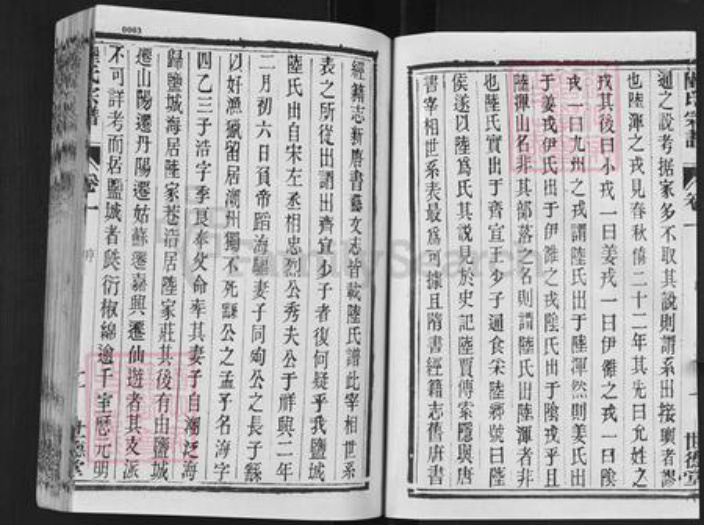 0003
陸氏宗譜
卷一
世德堂
通之說考据家多不取其說則謂系出接輿者謬
也陸渾之戎見春秋僖二十二年其先曰允姓之
戎其後曰小戎一曰姜戎一曰伊雒之戎一曰陰
戎一曰九州之戎謂陸氏出于陸渾然則姜氏出
于姜戎伊氏出于伊雒之戎陰氏出于陰戎乎且
陸渾山名非其部落之名則謂陸氏出陸渾者非
也陸氏實出于齊宣王少子通食采陸鄉號曰陸
侯遂以陸爲氏其說見於史記陸賈傳索隱與唐
書宰相世系表最爲可據且隋書經籍志舊唐書
經籍志新唐書藝文志皆載陸氏譜此宰相世系
表之所從出謂出齊宣少子者復何疑乎我鹽城
陸氏出自宋左丞相忠烈公秀夫公于祥興二年
二月初六日負帝蹈海驅妻子同殉公之長子繇
以好漁獵留居潮州獨不死繇公之孟子名海字
四乙三子浩字季良奉父命率其妻子自潮泛海
歸鹽城海居陸家巷浩居陸家莊其後有由鹽城
遷山陽遷丹陽遷姑蘇遷嘉興遷仙遊者其支派
不可詳考而居鹽城者瓞衍椒綿逾千室歷元明
陸氏宗譜
卷一
世德堂
FamilySearch